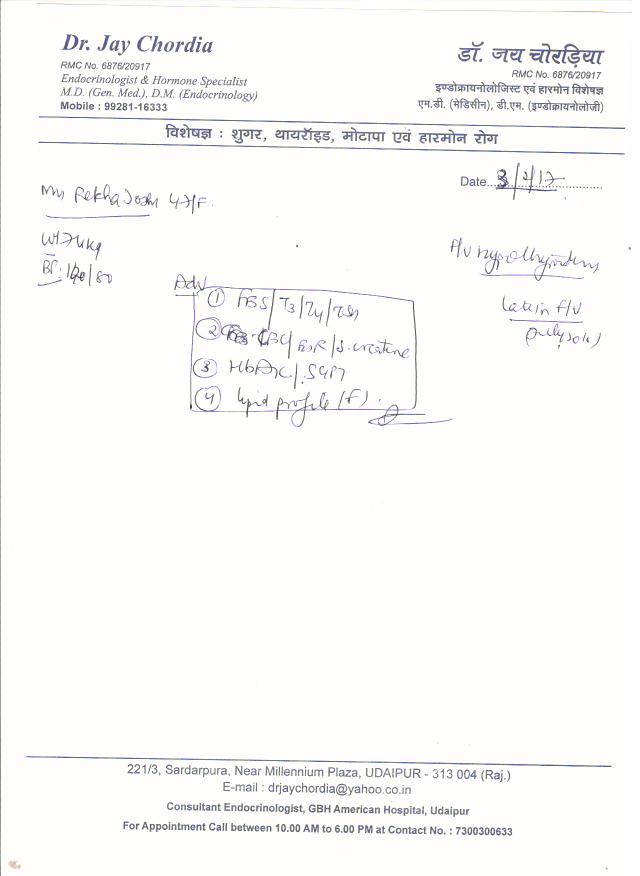 Dr. Jay Chordia
RMC No. 6876/20917
Endocrinologist & Hormone Specialist
M.D. (Gen. Med.), D.M. (Endocrinology)
Mobile : 99281-16333
डॉ. जय चोरड़िया
RMC No. 6876/20917
इण्डोक्रायनोलोजिस्ट एवं हारमोन विशेषज्ञ
एम.डी. (मेडिसीन), डी.एम. (इण्डोक्रायनोलोजी)
विशेषज्ञ : शुगर, थायरॉइड, मोटापा एवं हारमोन रोग
Date
Rekha Joshi 47/F.
Wt 74kg
BP: 120/80
F/U hypothyroidism
Late in F/U
Adv
① FBS/T3/T4/TSH
② CBC/ESR/S. creatine
③ HbA1c/SGPT
④ lipid profile (F).
221/3, Sardarpura, Near Millennium Plaza, UDAIPUR - 313 004 (Raj.)
E-mail : drjaychordia@yahoo.co.in
Consultant Endocrinologist, GBH American Hospital, Udaipur
For Appointment Call between 10.00 AM to 6.00 PM at Contact No. : 7300300633